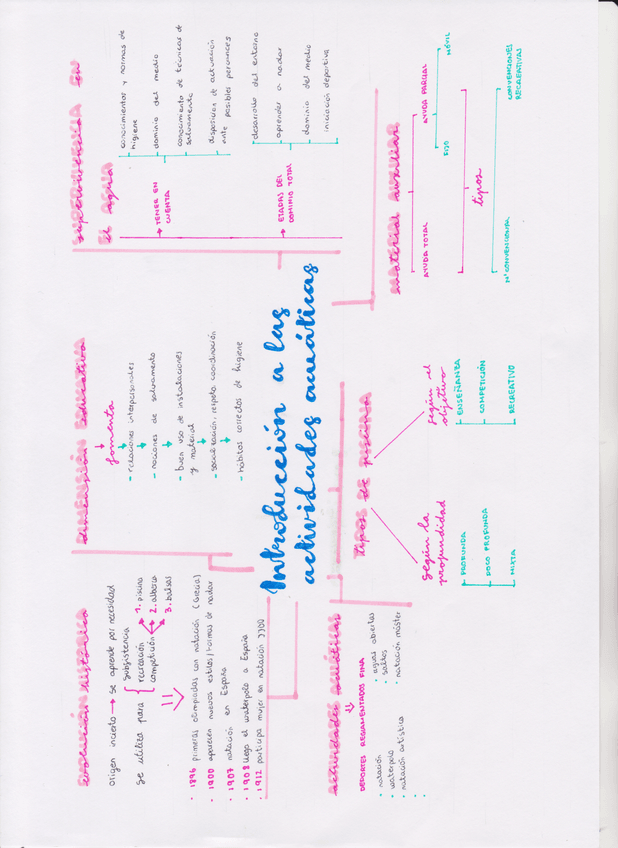 Introducción a las
actividades acuáticas
evolución histórica
origen incierto → se aprende por necesidad
se utiliza para
subsistencia
recreación
competición
1. piscina
2. alberca
3. balsas
· 1896 primeras olimpiadas con natación (Grecia)
· 1900 aparecen nuevos estilos/formas de nadar
· 1907 natación en España
· 1908 llega el waterpolo a España
· 1912 participa mujer en natación JJOO
dimensión educativa
fomenta
- relaciones interpersonales
- nociones de salvamento
- buen uso de instalaciones
y material
- socialización, respeto, coordinación
- hábitos correctos de higiene
supervivencia en
el agua
→ TENER EN
CUENTA
conocimientos y normas de
higiene
dominio del medio
conocimiento de técnicas de
salvamento
disposición de actuación
ante posibles percances
→ ETAPAS DEL
DOMINIO TOTAL
desarrollo del entorno
aprender a nadar
dominio del medio
iniciación deportiva
actividades acuáticas
DEPORTES REGLAMENTADOS FINA
· natación
· waterpolo
· natación artística
· aguas abiertas
· saltos
· natación máster
tipos de piscina
según la
profundidad
PROFUNDA
POCO PROFUNDA
MIXTA
según el
objetivo
ENSEÑANZA
COMPETICIÓN
RECREATIVO
material auxiliar
AYUDA TOTAL
AYUDA PARCIAL
FIJO
MÓVIL
tipos
Nº CONVENCIONAL
CONVENCIONES
RECREATIVAS